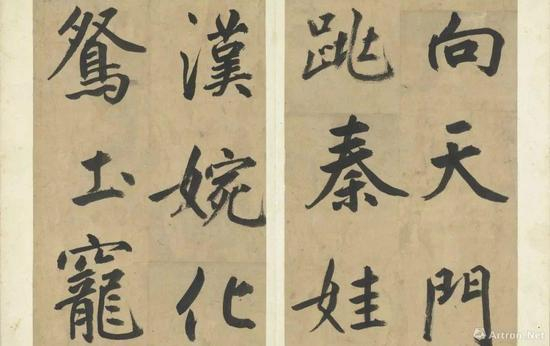 向天門
跳秦娃
漢婉化
鴛土竉
Artron.Net